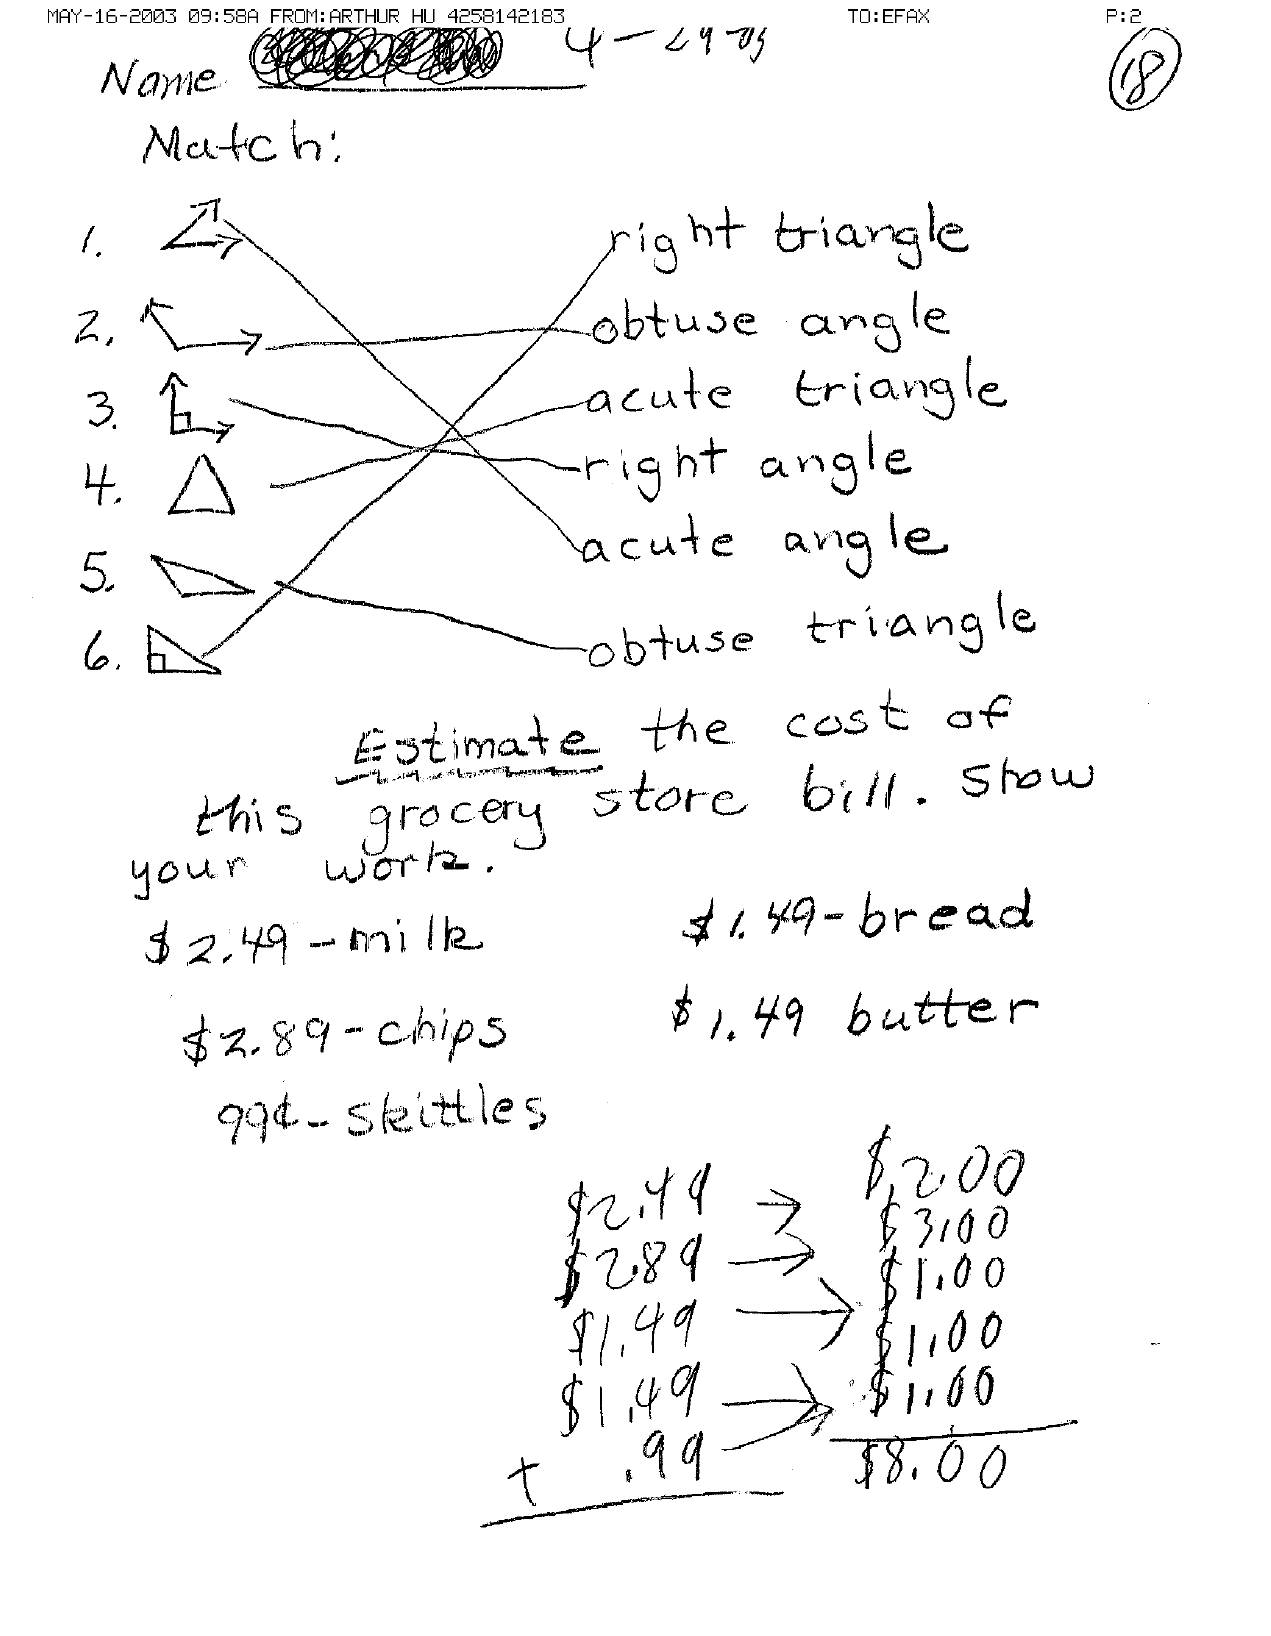 MAY-16-2003 09:58A FROM:ARTHUR HU 4258142183 TO:EFAX P:2
4-29-03
Name
18
Match:
1. right triangle
2. obtuse angle
3. acute triangle
4. right angle
5. acute angle
6. obtuse triangle
Estimate the cost of
this grocery store bill. Show
your work.
$2.49-milk $1.49-bread
$2.89-chips $1.49 butter
99¢-Skittles
$2.49 $2.00
$2.89 $3.00
$1.49 $1.00
$1.49 $1.00
+ .99 $1.00
$8.00